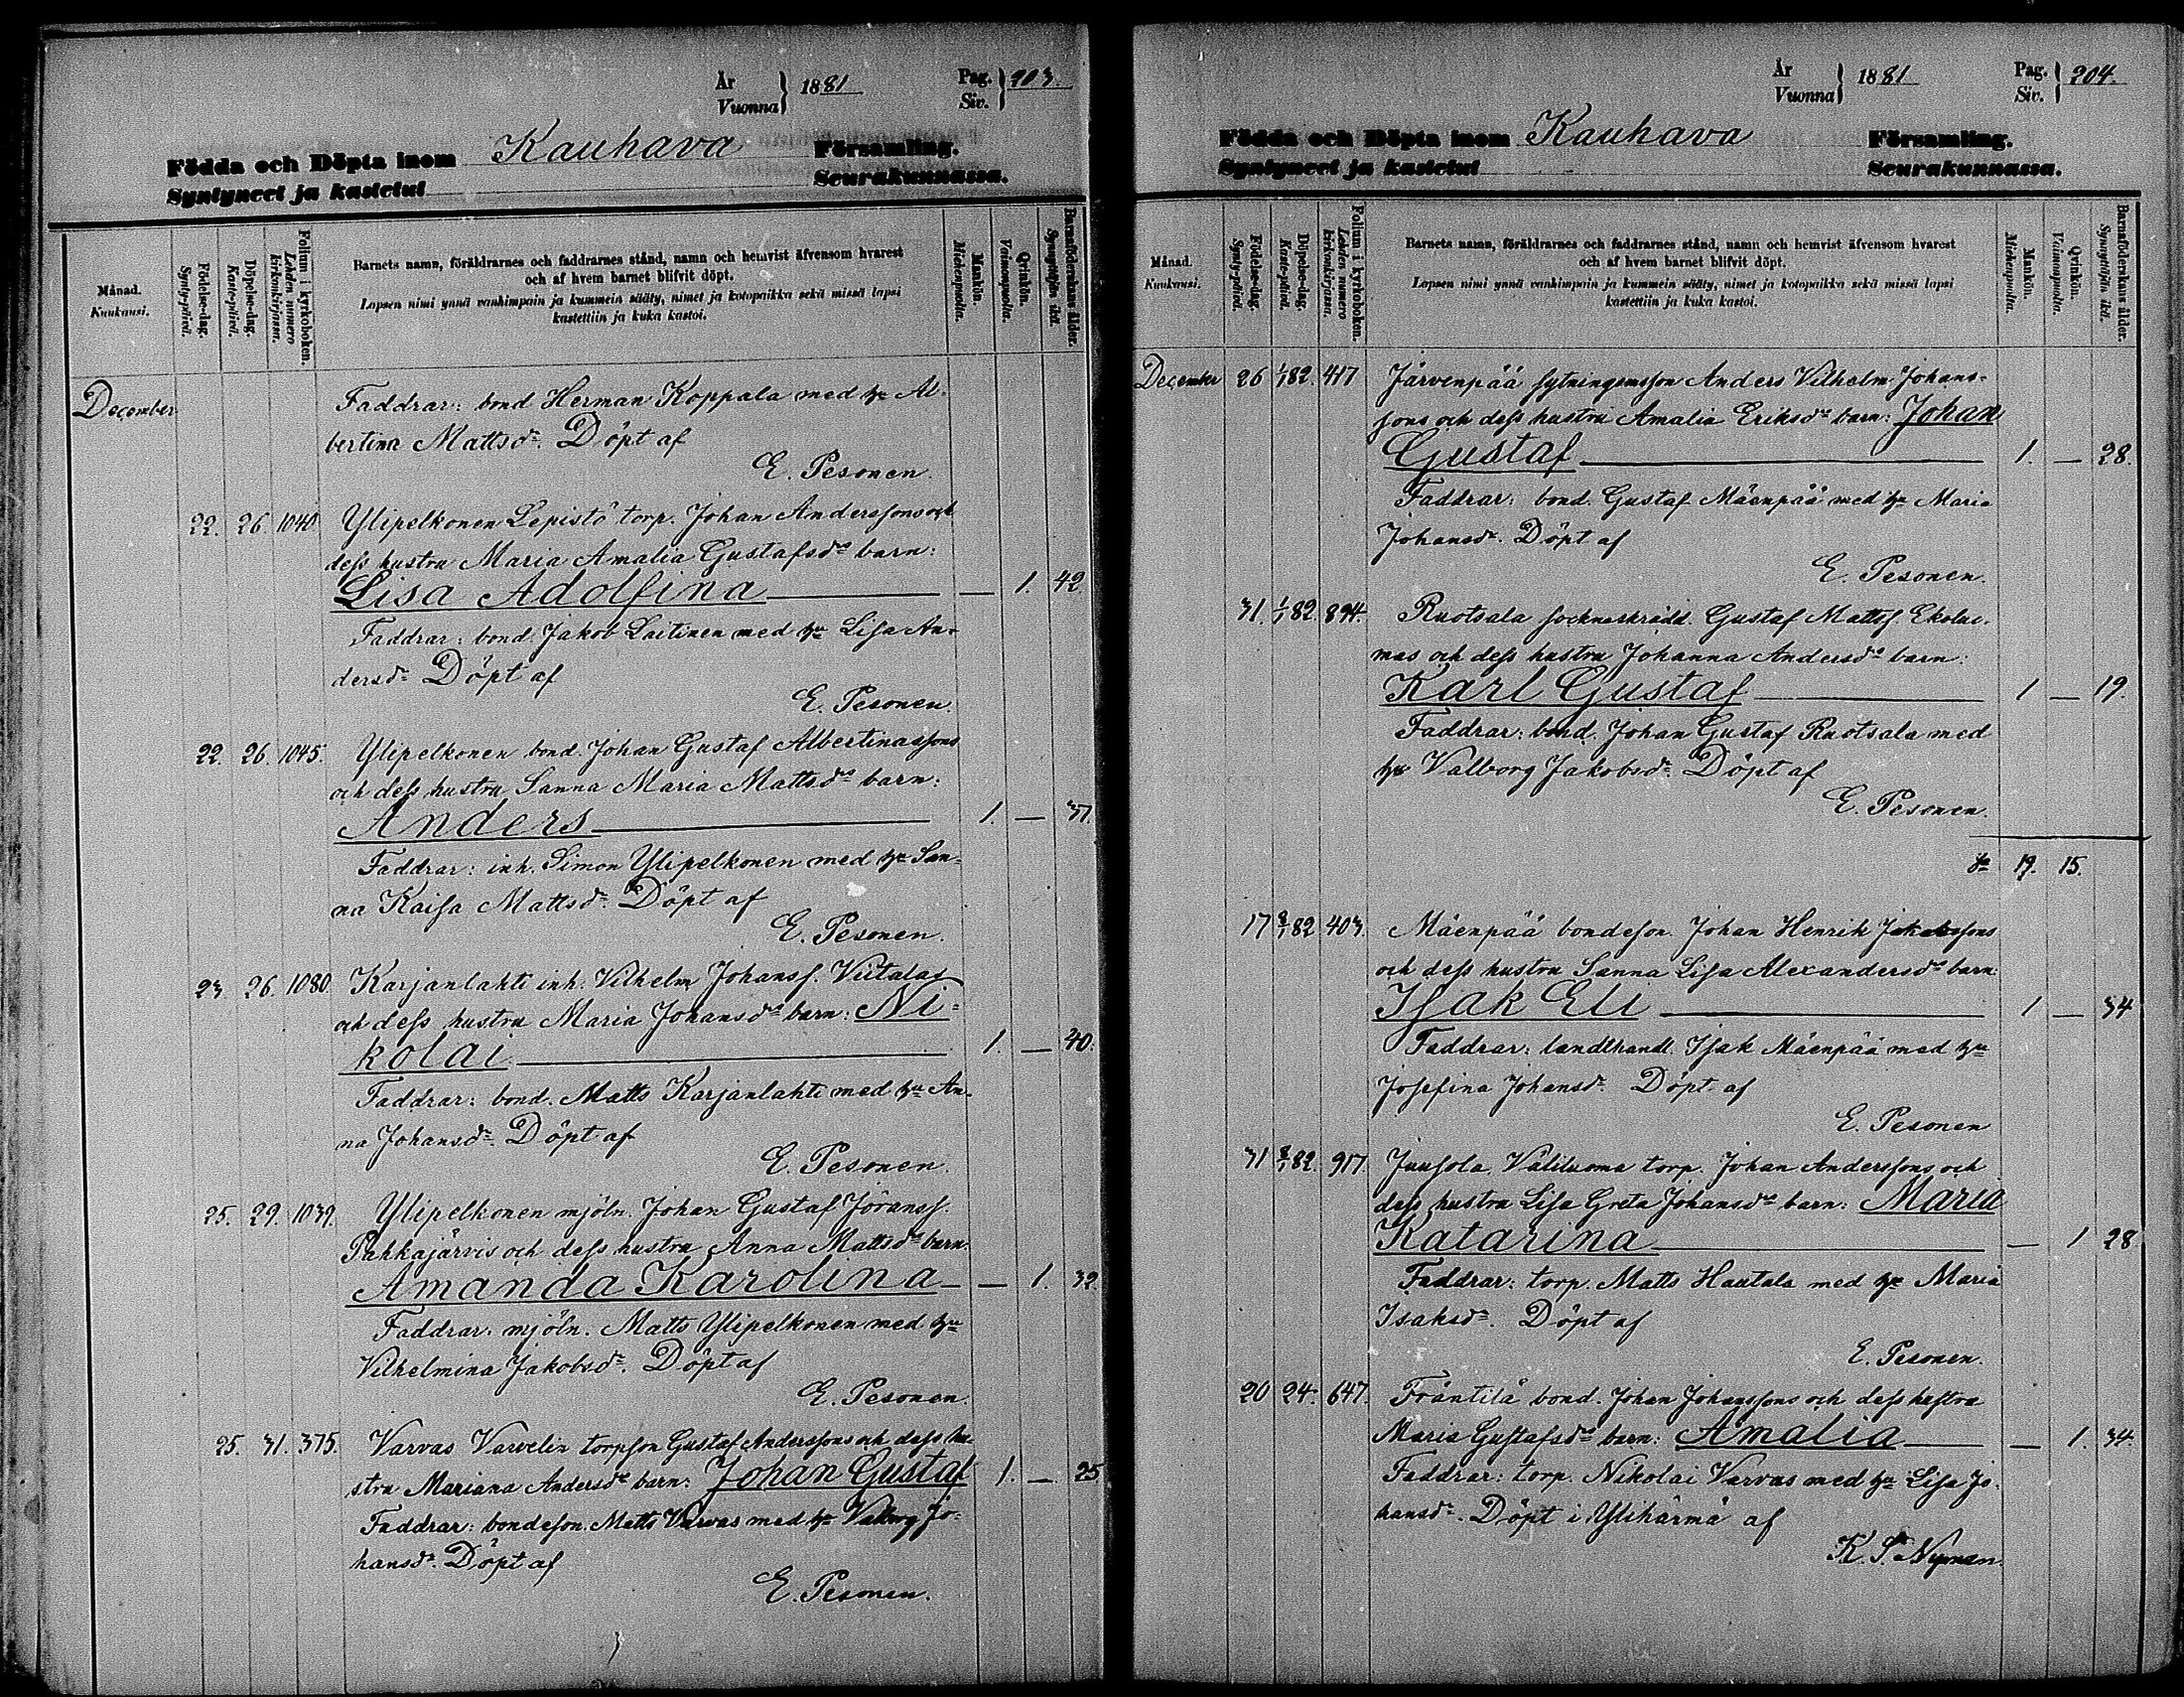 År
Vuonna } 1881
Pag.
Siv. } 203.
Födda och Döpta inom Kauhava Församling.
Syntyneet ja kastetut Seurakunnassa.
Månad.
Kuukausi.
Födelse-dag.
Synty-päivä.
Döpelse-dag.
Kaste-päivä.
Folium i kyrkoboken.
Lehden numero kirkonkirjassa.
Barnets namn, föräldrarnes och faddrarnes stånd, namn och hemvist äfvensom hvarest
och af hvem barnet blifvit döpt.
Lapsen nimi ynnä vanhimpain ja kummein sääty, nimet ja kotopaikka sekä missä lapsi
kastettiin ja kuka kastoi.
Mankön.
Miehenpuolta.
Qvinkön.
Vaimonpuolta.
Barnaföderskans ålder.
Synnyttäjän ikä.
December
Faddrar: bond Herman Koppala med hu Al-
bertina Mattsdr. Döpt af
E. Pesonen.
22. 26. 1040 Ylipelkonen Lepistö torp. Johan Anderssons och
dess hustru Maria Amalia Gustafsds barn:
Lisa Adolfina — 1. 42.
Faddrar: bond. Jakob Laitinen med hu Lisa An-
dersdr Döpt af
E. Pesonen.
22. 26. 1045. Ylipelkonen bond. Johan Gustaf Albertinassons
och dess hustru Sanna Maria Mattsds barn:
Anders 1. — 37.
Faddrar: inh. Simon Ylipelkonen med hu San-
na Kaisa Mattsdr. Döpt af
E. Pesonen.
23. 26. 1080. Karjanlahti inh. Vilhelm Johanss. Viitalas
och dess hustru Maria Johansds barn: Ni-
kolai 1. — 40.
Faddrar: bond. Matts Karjanlahti med hu An-
na Johansdr. Döpt af
E. Pesonen.
25. 29. 1039. Ylipelkonen mjöln. Johan Gustaf Jöranss.
Pahkajärvis och dess hustru Anna Mattsds barn.
Amanda Karolina — 1. 32.
Faddrar: mjöln. Matts Ylipelkonen med hu
Vilhelmina Jakobsdr. Döpt af
E. Pesonen.
25. 31. 375. Varvas Varvelin torpson Gustaf Anderssons och dess hu-
stru Mariana Andersds barn: Johan Gustaf 1. — 25
Faddrar: bondeson. Matts Varvas med hu Valborg Jo-
hansdr. Döpt af
E. Pesonen.
År
Vuonna } 1881
Pag.
Siv. } 204.
Födda och Döpta inom Kauhava Församling.
Syntyneet ja kastetut Seurakunnassa.
Månad.
Kuukausi.
Födelse-dag.
Synty-päivä.
Döpelse-dag.
Kaste-päivä.
Folium i kyrkoboken.
Lehden numero kirkonkirjassa.
Barnets namn, föräldrarnes och faddrarnes stånd, namn och hemvist äfvensom hvarest
och af hvem barnet blifvit döpt.
Lapsen nimi ynnä vanhimpain ja kummein sääty, nimet ja kotopaikka sekä missä lapsi
kastettiin ja kuka kastoi.
Mankön.
Miehenpuolta.
Qvinkön.
Vaimonpuolta.
Barnaföderskans ålder.
Synnyttäjän ikä.
December 26 1/1 82. 417 Järvenpää sytningsmsson Anders Vilhelm Johans-
sons och dess hustru Amalia Eriksds barn: Johan
Gustaf 1. — 28.
Faddrar: bond. Gustaf Mäenpää med hu Maria
Johansdr. Döpt af
E. Pesonen.
31. 1/1 82. 894. Ruotsala sockneskrädd. Gustaf Mattss. Ekoluo-
mas och dess hustru Johanna Andersds barn:
Karl Gustaf 1 — 19.
Faddrar: bond. Johan Gustaf Ruotsala med
hu Valborg Jakobsdr. Döpt af
E. Pesonen.
Sa 19. 15.
17 8/1 82 403. Mäenpää bondeson. Johan Henrik Jakobssons
och dess hustru Sanna Lisa Alexandersds barn:
Isak Eli 1 — 34
Faddrar: landthandl. Isak Mäenpää med hu
Josefina Johansdr. Döpt af
E. Pesonen
31 8/1 82. 917 Juusola Väliluoma torp. Johan Anderssons och
dess hustru Lisa Greta Johansds barn: Maria
Katarina — 1 28
Faddrar: torp. Matts Hautala med hu Maria
Isaksdr. Döpt af
E. Pesonen.
20 24. 647. Fräntilä bond. Johan Johanssons och dess hustru
Maria Gustafsds barn: Amalia — 1. 34.
Faddrar: torp. Nikolai Varvas med hu Lisa Jo-
hansdr. Döpt i Ylihärmä af
K. S. Nyman.